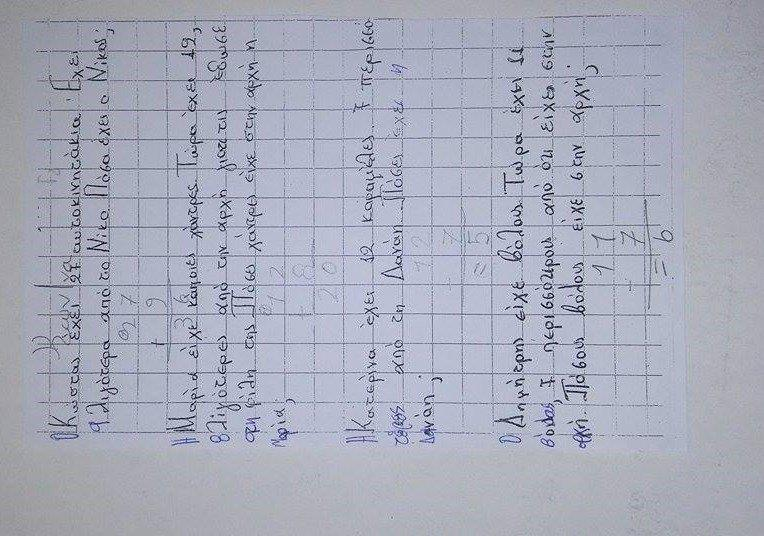 Ο Κώστας έχει 27 αυτοκινητάκια. Έχει
9 λιγότερα από το Νίκο. Πόσα έχει ο Νίκος;
27
+ 9
Η Μαρία είχε κάποιες χάντρες. Τώρα έχει 12,
8 λιγότερες από την αρχή γιατί τις έδωσε
στη φίλη της. Πόσες χάντρες είχε στην αρχή η
Μαρία;
12
8
20
Η Κατερίνα έχει 12 καραμέλες. 7 περισσό
τερες από τη Δανάη. Πόσες έχει η
Δανάη;
12
- 7
= 5
Ο Δημήτρης είχε βόλους. Τώρα έχει 11
βόλους, 7 περισσότερους από ότι είχε στην
αρχή. Πόσους βόλους είχε στην αρχή;
11
- 7
= 6